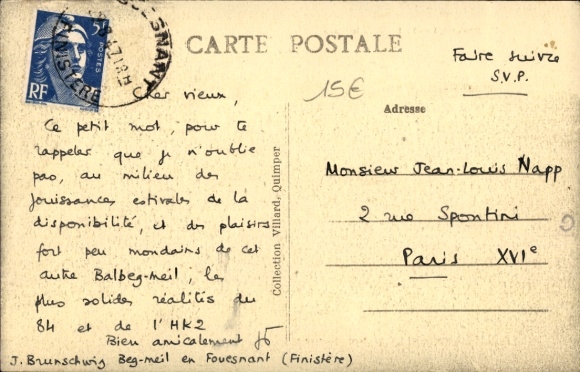 5F
POSTES
RF
FOUESNANT
FINISTÈRE
CARTE POSTALE
Faire suivre
S.V.P.
15€
Adresse
Cher vieux,
Ce petit mot, pour te
rappeler que je n'oublie
pas, au milieu des
jouissances estivales de la
disponibilité, et des plaisirs
fort peu mondains de cet
autre Balbeg-meil, les
plus solides réalités du
84 et de l'HK2
Bien amicalement
J. Brunschwig Beg-meil en Fouesnant (Finistère)
Collection Villard, Quimper
Monsieur Jean-Louis Napp
2 rue Spontini
Paris XVIe